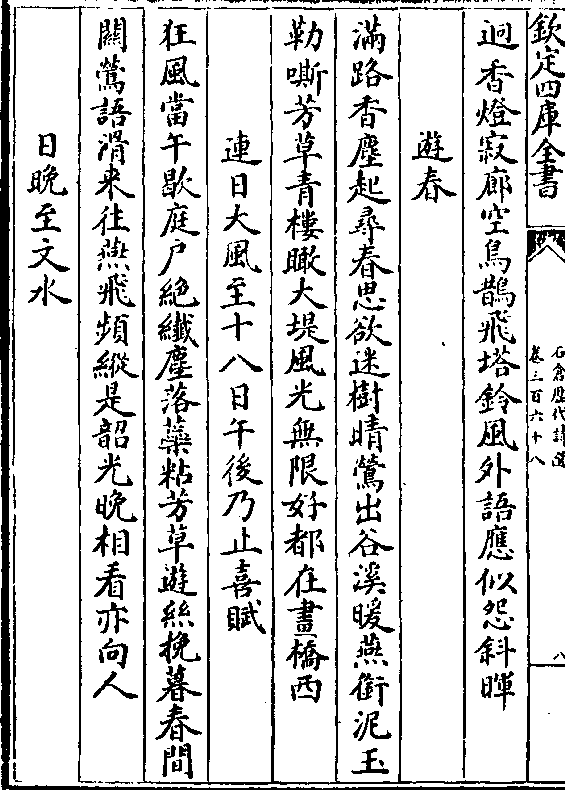 欽定四庫全書
石倉歷代詩選
卷三百六十八
八
迥香燈寂廊空烏鵲飛塔鈴風外語應似怨斜暉
遊春
滿路香塵起尋春思欲迷樹晴鶯出谷溪暖燕銜泥玉
勒嘶芳草青樓瞰大堤風光無限好都在畫橋西
連日大風至十八日午後乃止喜賦
狂風當午歇庭户絶纖塵落蘂粘芳草遊絲挽暮春間
關鶯語滑来往燕飛頻縱是韶光晚相看亦向人
日晚至文水